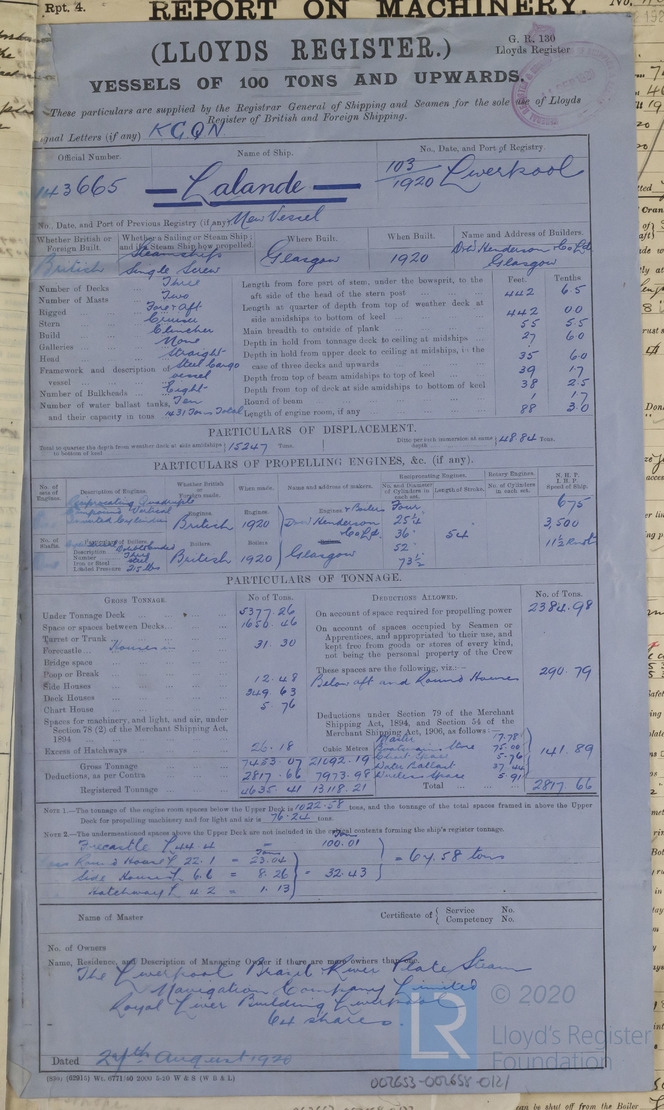 Rpt. 4.
REPORT ON MACHINERY.
No.
(LLOYDS REGISTER.)
G. R. 130
Lloyds Register
VESSELS OF 100 TONS AND UPWARDS.
These particulars are supplied by the Registrar General of Shipping and Seamen for the sole use of Lloyds
Register of British and Foreign Shipping.
Signal Letters (if any) KCQN
Official Number. Name of Ship. No., Date, and Port of Registry.
143665 Lalande 103/1920 Liverpool
No., Date, and Port of Previous Registry (if any) New Vessel
Whether British or Foreign Built. Whether a Sailing or Steam Ship and if a Steam Ship how propelled. Where Built. When Built. Name and Address of Builders.
British Steamship Single Screw Glasgow 1920 Henderson & Co Ltd Glasgow
Number of Decks Three
Number of Masts Two
Rigged Fore & Aft
Stern Cruiser
Build Clincher
Galleries None
Head Straight
Framework and description of vessel Steel Cargo vessel
Number of Bulkheads Eight
Number of water ballast tanks, Ten
and their capacity in tons 1431 Tons Total
Feet. Tenths
Length from fore part of stem, under the bowsprit, to the aft side of the head of the stern post 442 6.5
Length at quarter of depth from top of weather deck at side amidships to bottom of keel 442 00
Main breadth to outside of plank 55 5.5
Depth in hold from tonnage deck to ceiling at midships 27 60
Depth in hold from upper deck to ceiling at midships, in the case of three decks and upwards 35 60
Depth from top of beam amidships to top of keel 39 17
Depth from top of deck at side amidships to bottom of keel 38 2.5
Round of beam 1 17
Length of engine room, if any 88 3.0
PARTICULARS OF DISPLACEMENT.
Total to quarter the depth from weather deck at side amidships to bottom of keel 15247 Tons. Ditto per inch immersion at same depth 48.84 Tons.
PARTICULARS OF PROPELLING ENGINES, &c. (if any).
No. of sets of Engines. Description of Engines. Whether British or Foreign made. When made. Name and address of makers. Reciprocating Engines. Rotary Engines. N.H.P. I.H.P. Speed of Ship.
No. and Diameter of Cylinders in each set. Length of Stroke. No. of Cylinders in each set.
Engines. British Engines. 1920 Engines & Boilers Henderson & Co Ltd Glasgow
Four
25¼
36
52
73½
54
675
3,500
11½ Knots
No. of Shafts. Particulars of Boilers. Description Number Iron or Steel Loaded Pressure 215 lbs
Boilers. British Boilers. 1920
PARTICULARS OF TONNAGE.
GROSS TONNAGE. No of Tons. DEDUCTIONS ALLOWED. No. of Tons.
Under Tonnage Deck 5377.26
Space or spaces between Decks 1650.46
Turret or Trunk
Forecastle 31.30
Bridge space
Poop or Break 12.48
Side Houses
Deck Houses 349.63
Chart House 5.76
Spaces for machinery, and light, and air, under Section 78 (2) of the Merchant Shipping Act, 1894
Excess of Hatchways 26.18
Cubic Metres
Gross Tonnage 7453.07 21092.19
Deductions, as per Contra 2817.66 7973.98
Registered Tonnage 4635.41 13118.21
On account of space required for propelling power 2384.98
On account of spaces occupied by Seamen or Apprentices, and appropriated to their use, and kept free from goods or stores of every kind, not being the personal property of the Crew
These spaces are the following, viz.:—
Below aft and Round Houses 290.79
Deductions under Section 79 of the Merchant Shipping Act, 1894, and Section 54 of the Merchant Shipping Act, 1906, as follows:—
Master 7.78
Boatswains Store 75.00
Chart Space 5.76
Water Ballast 37.44
Wireless Space 5.91
141.89
Total 2817.66
NOTE 1.—The tonnage of the engine room spaces below the Upper Deck is 1022.58 tons, and the tonnage of the total spaces framed in above the Upper Deck for propelling machinery and for light and air is 76.24 tons.
NOTE 2.—The undermentioned spaces above the Upper Deck are not included in the cubical contents forming the ship's register tonnage.
Forecastle 44.4 = 100.01
Round House 22.1 = 23.04
Side House 6.6 = 8.26
Hatchway 4.2 = 1.13
= 32.43
= 67.58 tons
Name of Master Certificate of { Service No. Competency No.
No. of Owners
Name, Residence, and Description of Managing Owner if there are more owners than one.
The Liverpool Brazil River Plate Steam
Navigation Company Limited
Royal Liver Building Liverpool
64 shares.
Dated August 1920
© 2020
LR
Lloyd's Register
Foundation
(82915) Wt. 6771/80 2000 5-20 W & S (W B & L)
002653-002658-0121
can be shut off from the Boiler